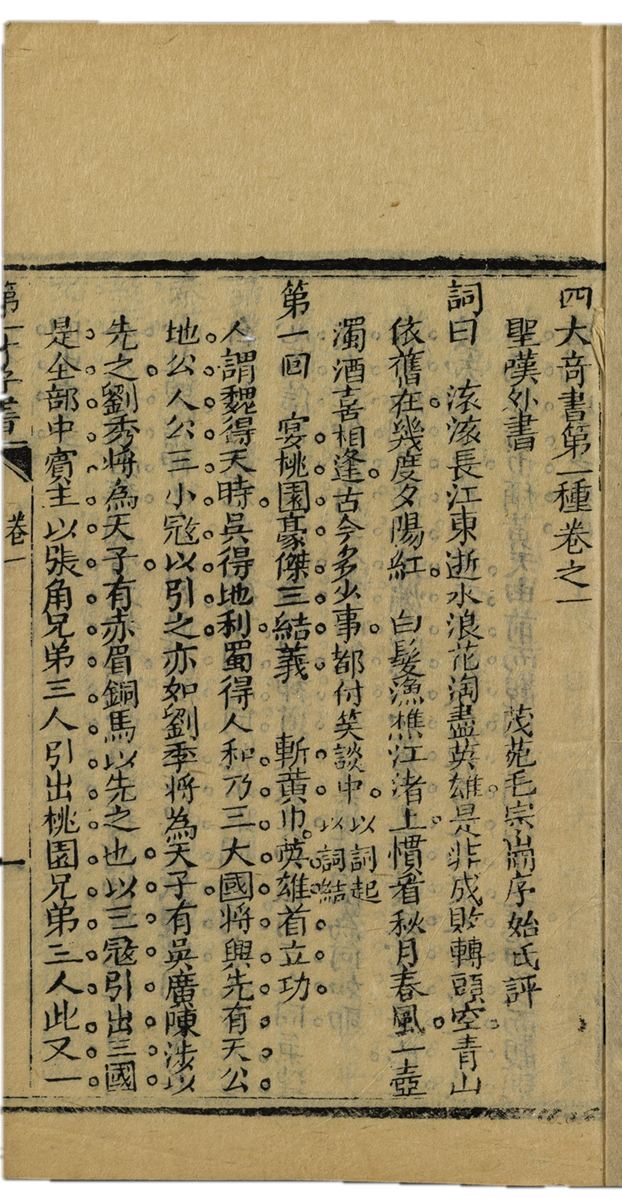 四大奇書第一種卷之一
聖嘆外書 茂苑毛宗崗序始氏評
詞曰 滾滾長江東逝水浪花淘盡英雄是非成敗轉頭空青山
依舊在幾度夕陽紅 白髮漁樵江渚上慣看秋月春風一壺
濁酒喜相逢古今多少事都付笑談中以詞起
以詞結
第一回 宴桃園豪傑三結義 斬黃巾英雄首立功
人謂魏得天時吳得地利蜀得人和乃三大國將興先有天公
地公人公三小寇以引之亦如劉季將為天子有吳廣陳涉以
先之劉秀將為天子有赤眉銅馬以先之也以三寇引出三國
是全部中賓主以張角兄弟三人引出桃園兄弟三人此又一
第一才子書
卷一
一